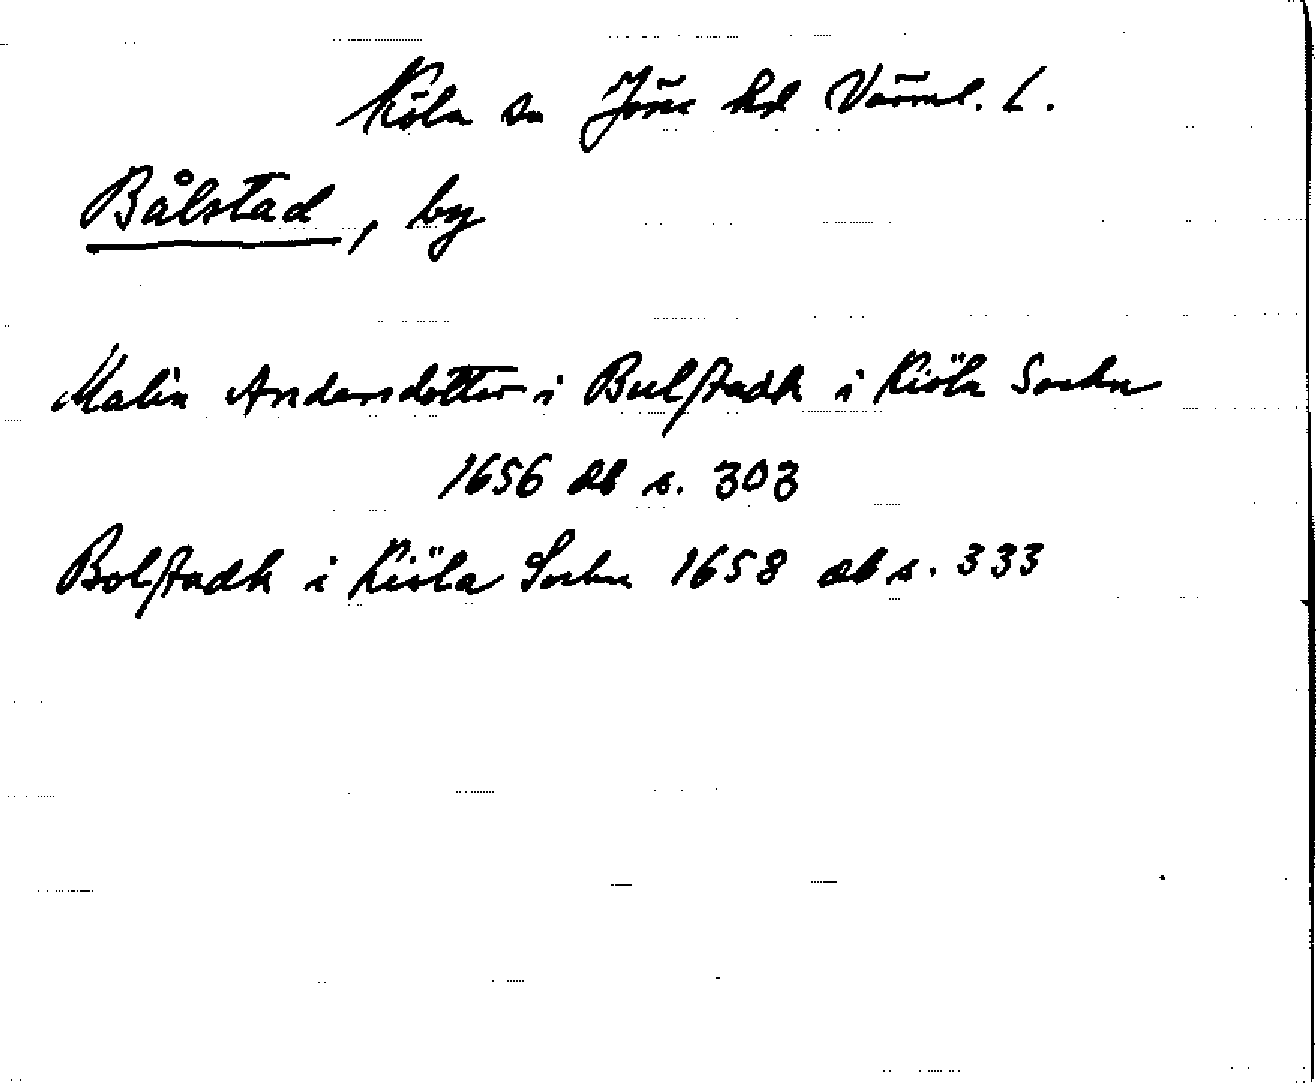 Köla sn Jösse hd Värml. L.
Bålstad, by
Malin Andersdotter i Bulstadh i Kiöla Sochn
1656 db s. 303
Bolstadh i Kiöla Sochn 1658 db s. 333